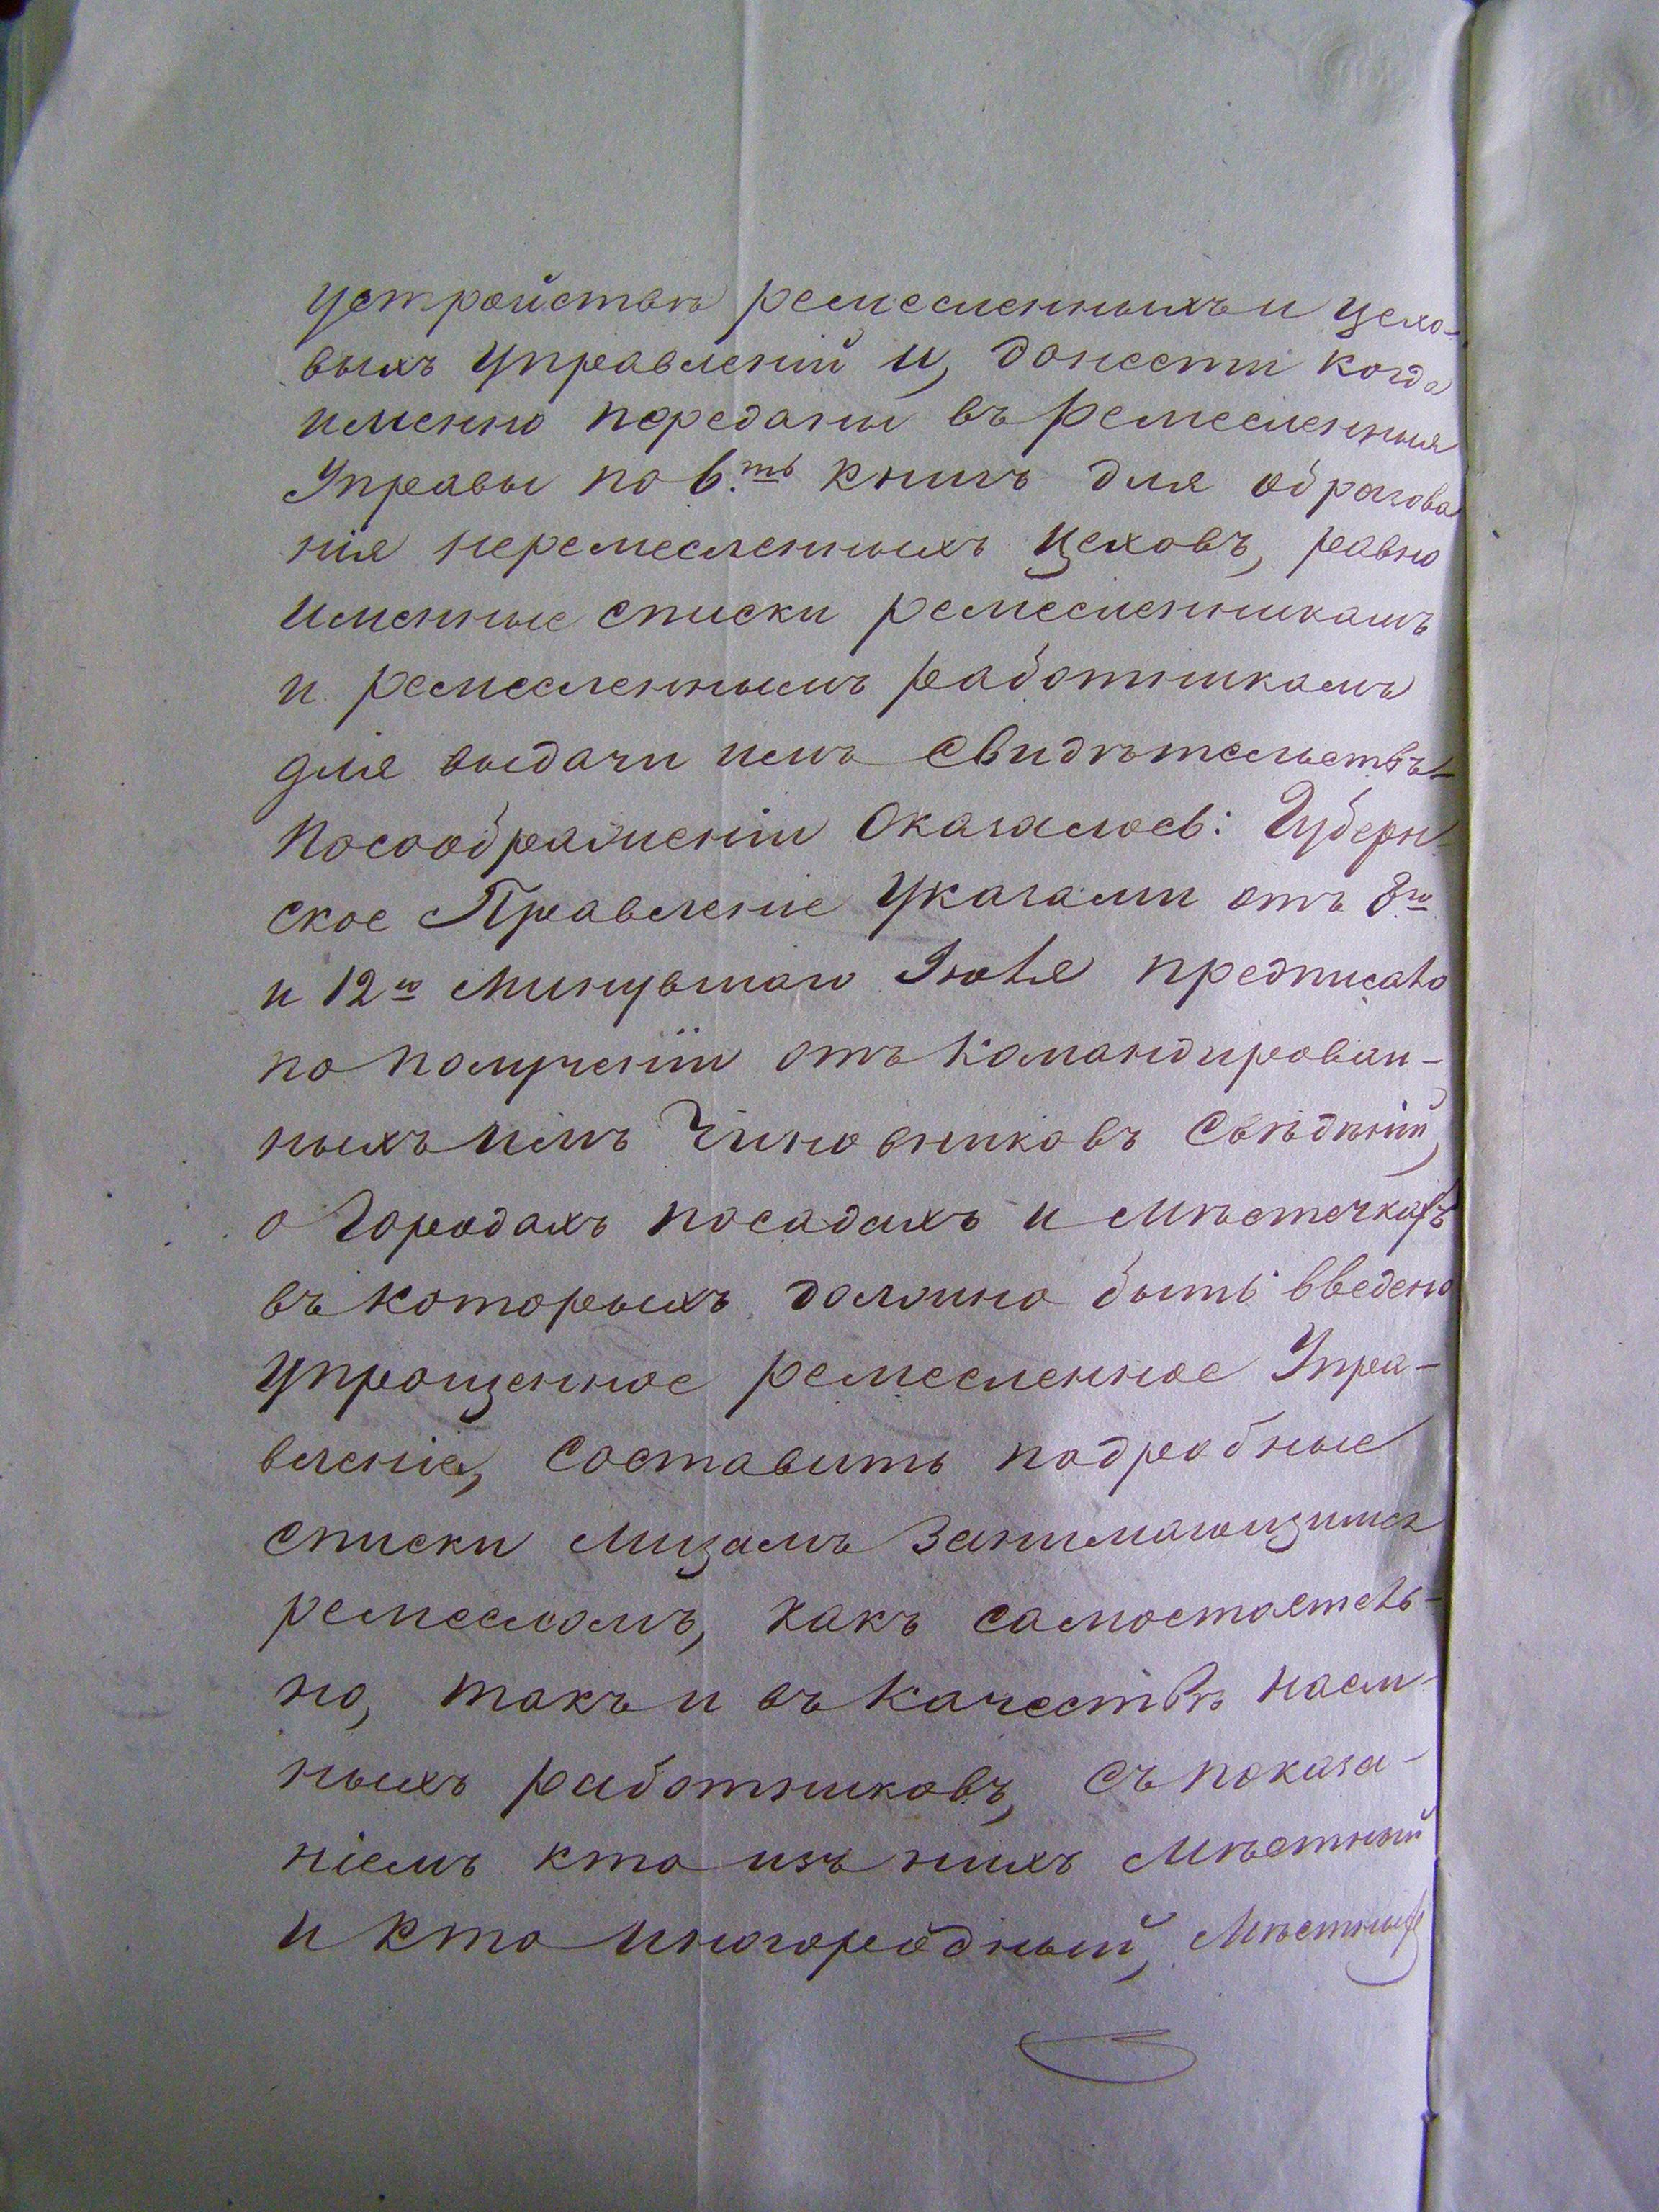 устройствѣ ремесленныхъ и цехо-
выхъ управленій и, донести когда
именно переданы въ Ремесленныя
Управы по 6.ть книгъ для образова
нія неремесленныхъ цеховъ, равно
именные списки ремесленникамъ
и ремесленнымъ работникамъ
для выдачи имъ свидѣтельствъ.-
Посоображеніи Оказалось: Губерн-
ское Правленіе Указами отъ 8го
и 12го Минувшаго Іюля предписало
по полученіи отъ командирован-
ныхъ имъ Чиновниковъ свѣдѣній,
о Городахъ посадахъ и мѣстечкахъ
въ которыхъ должно быть введено
упрощенное ремесленное Упра-
вленіе, составить подробные
списки лицамъ занимающимся
ремесломъ, какъ самостоятель-
но, такъ и въ качествѣ наем-
ныхъ работниковъ, съ показа-
ніемъ кто изъ нихъ мѣстный
и кто иногородный, Мѣстные